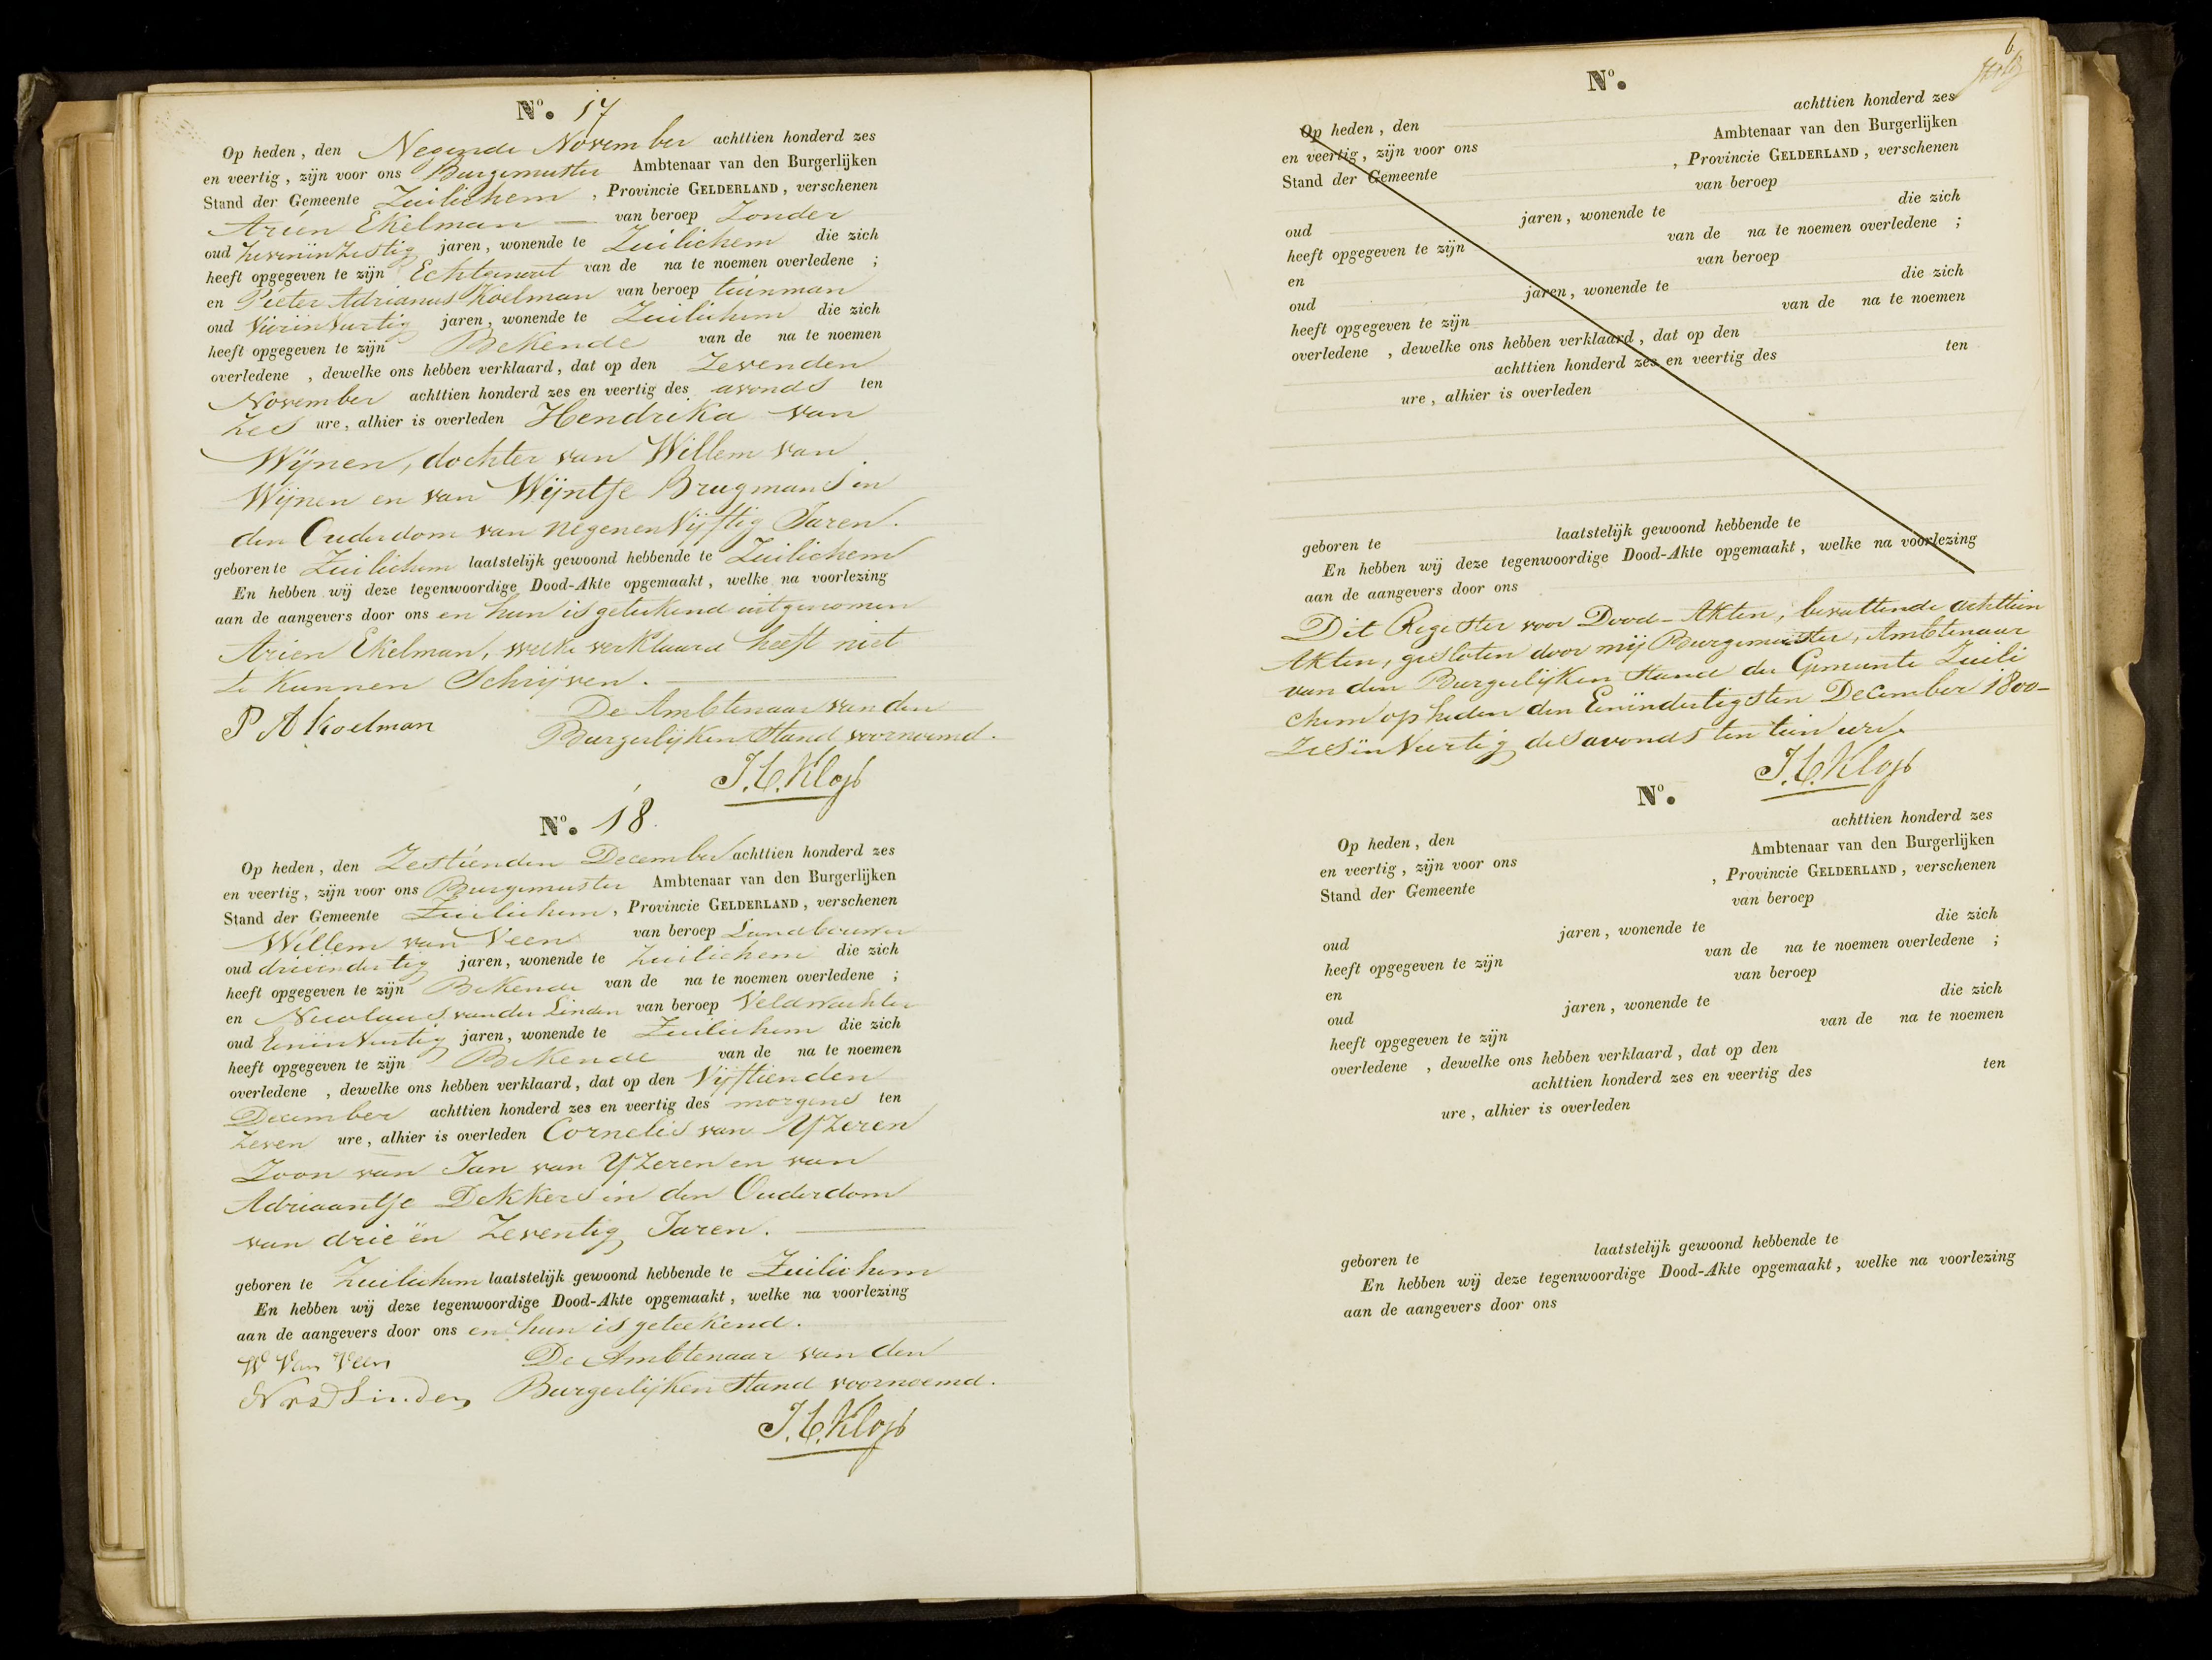 No. 17
Op heden, den Negende November achttien honderd zes
en veertig, zijn voor ons Burgemeester Ambtenaar van den Burgerlijken
Stand der Gemeente Zuilichem, Provincie GELDERLAND, verschenen
Ariën Ekelman — van beroep Zonder
oud zevenenzestig jaren, wonende te Zuilichem die zich
heeft opgegeven te zijn Echtgenoot van de na te noemen overledene ;
en Pieter Adrianus Koelman van beroep tuinman
oud Vierënveertig jaren, wonende te Zuilichem die zich
heeft opgegeven te zijn Bekende van de na te noemen
overledene , dewelke ons hebben verklaard, dat op den Zevenden
November achttien honderd zes en veertig des avonds ten
Zes ure, alhier is overleden Hendrika van
Wijnen, dochter van Willem van
Wijnen en van Wijntje Brugmans in
den Ouderdom van negenenvijftig Jaren.
geboren te Zuilichem laatstelijk gewoond hebbende te Zuilichem
En hebben wij deze tegenwoordige Dood-Akte opgemaakt, welke na voorlezing
aan de aangevers door ons en hun is geteekend uitgenomen
Arien Ekelman, welke verklaard heeft niet
te Kunnen Schrijven. —
P A Koelman De Ambtenaar van den
Burgerlijken Stand voornoemd.
J. C. Klop
No. 18
Op heden, den Zestienden December achttien honderd zes
en veertig, zijn voor ons Burgemeester Ambtenaar van den Burgerlijken
Stand der Gemeente Zuilichem, Provincie GELDERLAND, verschenen
Willem van Veen van beroep Landbouwer
oud drieëndertig jaren, wonende te Zuilichem die zich
heeft opgegeven te zijn Bekende van de na te noemen overledene ;
en Nicolaas van der Linden van beroep Veldwachter
oud Eenënveertig jaren, wonende te Zuilichem die zich
heeft opgegeven te zijn Bekende van de na te noemen
overledene , dewelke ons hebben verklaard, dat op den Vijftienden
December achttien honderd zes en veertig des morgens ten
Zeven ure, alhier is overleden Cornelis van Yzeren
Zoon van Jan van Yzeren en van
Adriaantje Dekkers in den Ouderdom
van drie ën Zeventig Jaren. —
geboren te Zuilichem laatstelijk gewoond hebbende te Zuilichem
En hebben wij deze tegenwoordige Dood-Akte opgemaakt, welke na voorlezing
aan de aangevers door ons en hun is geteekend.
W Van Veen De Ambtenaar van den
Linden Burgerlijken Stand voornoemd.
J. C. Klop
6
No.
Op heden, den achttien honderd zes
en veertig, zijn voor ons Ambtenaar van den Burgerlijken
Stand der Gemeente , Provincie GELDERLAND, verschenen
van beroep
oud jaren, wonende te die zich
heeft opgegeven te zijn van de na te noemen overledene ;
en van beroep
oud jaren, wonende te die zich
heeft opgegeven te zijn van de na te noemen
overledene , dewelke ons hebben verklaard, dat op den
achttien honderd zes en veertig des ten
ure, alhier is overleden
geboren te laatstelijk gewoond hebbende te
En hebben wij deze tegenwoordige Dood-Akte opgemaakt, welke na voorlezing
aan de aangevers door ons
Dit Register voor Dood-Akten, bevattende achttien
Akten, gesloten door mij Burgemeester, Ambtenaar
van den Burgerlijken Stand der Gemeente Zuili
chem op heden den Eenëndertigsten December 1800-
Zesënveertig des avonds ten tien ure.
J. C. Klop
No.
Op heden, den achttien honderd zes
en veertig, zijn voor ons Ambtenaar van den Burgerlijken
Stand der Gemeente , Provincie GELDERLAND, verschenen
van beroep
oud jaren, wonende te die zich
heeft opgegeven te zijn van de na te noemen overledene ;
en van beroep
oud jaren, wonende te die zich
heeft opgegeven te zijn van de na te noemen
overledene , dewelke ons hebben verklaard, dat op den
achttien honderd zes en veertig des ten
ure, alhier is overleden
geboren te laatstelijk gewoond hebbende te
En hebben wij deze tegenwoordige Dood-Akte opgemaakt, welke na voorlezing
aan de aangevers door ons